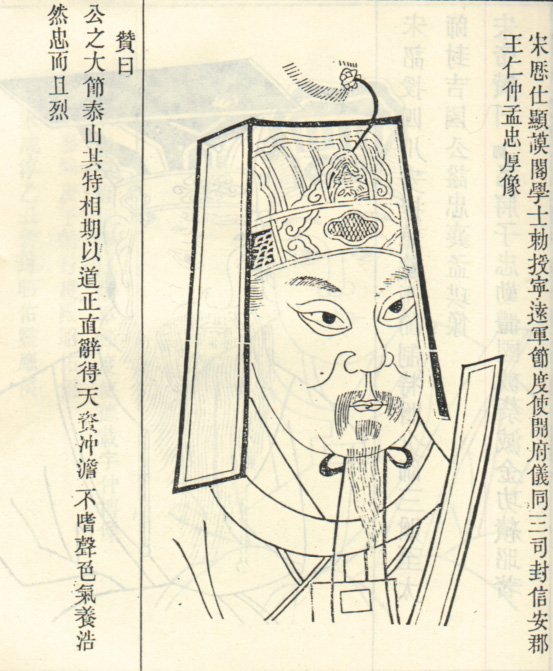 宋歷仕顯謨閣學士勅授寧遠軍節度使開府儀同三司封信安郡
王仁仲孟忠厚像
贊曰
公之大節泰山其特相期以道正直辭得天資冲澹不嗜聲色氣養浩
然忠而且烈